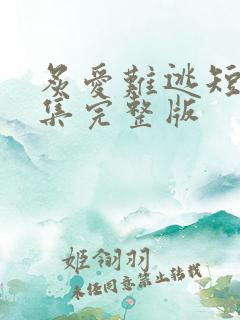 炙愛難逃短
集完整版
姬翎羽
未经同意禁止转载